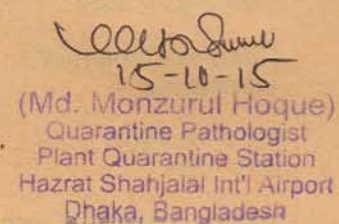 15-10-15
(Md. Monzurul Hoque)
Quarantine Pathologist
Plant Quarantine Station
Hazrat Shahjalal Int'l Airport
Dhaka, Bangladesh